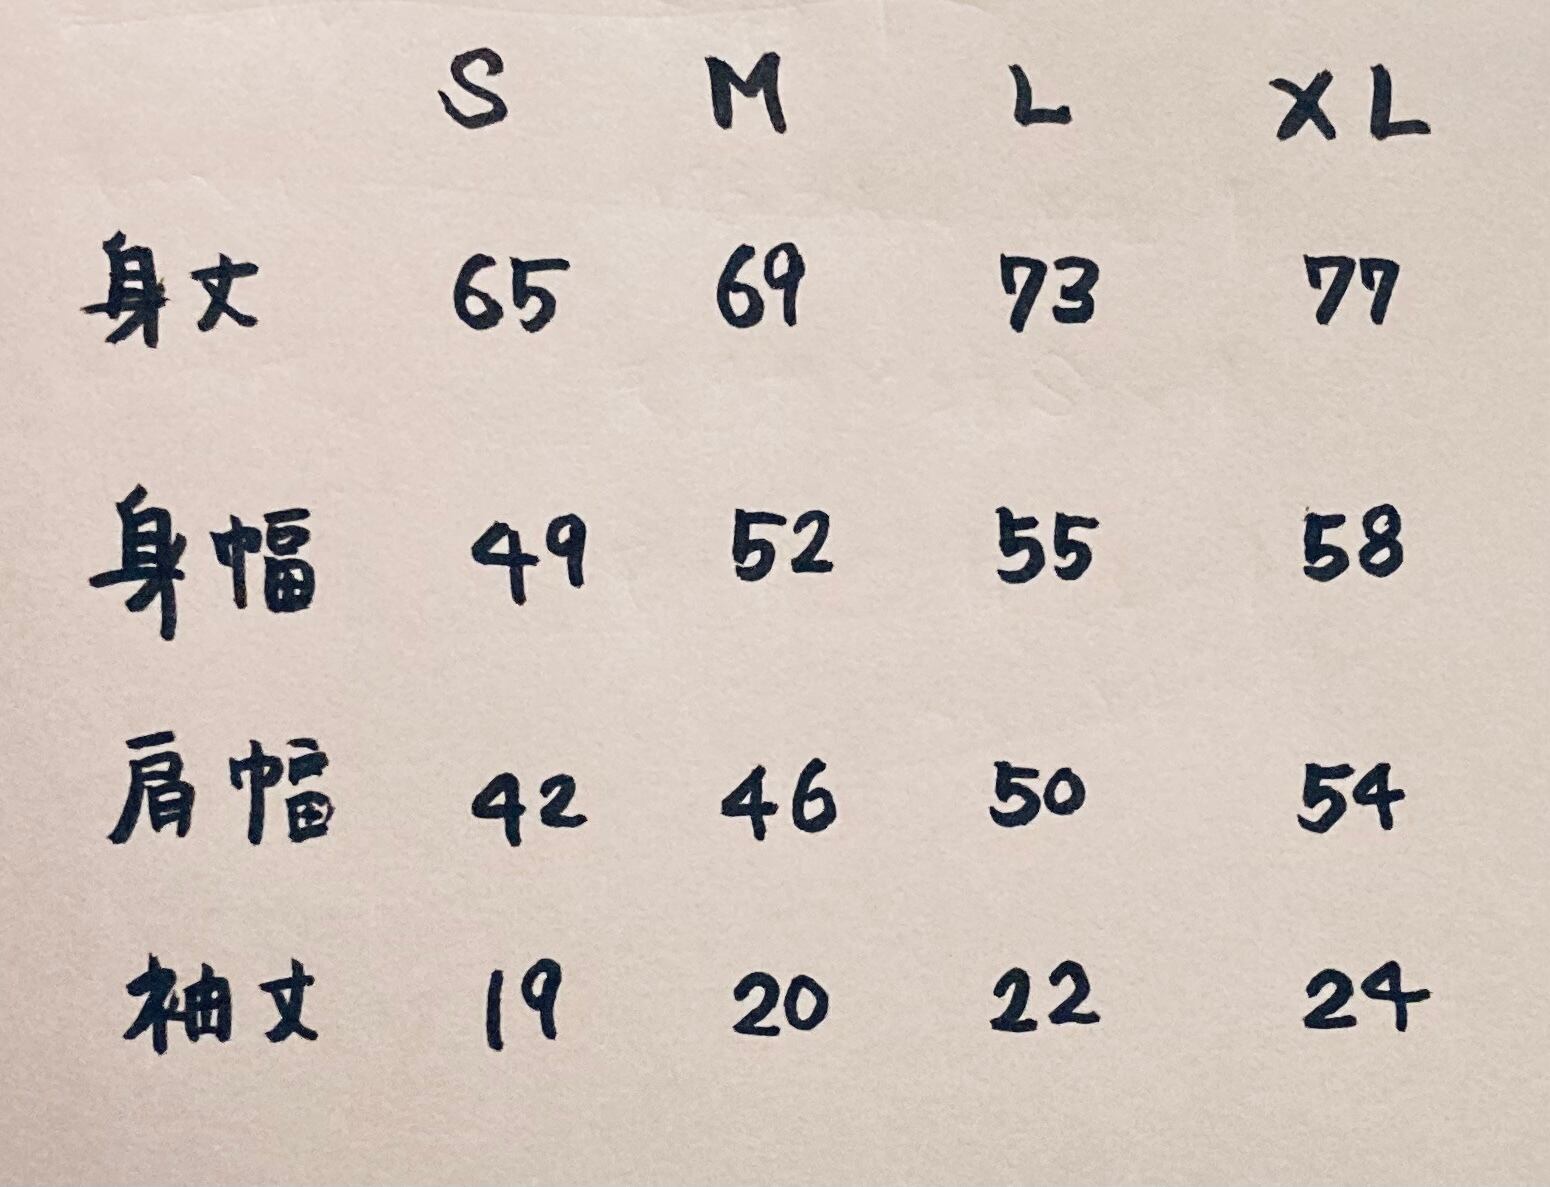 S M L XL
身丈 65 69 73 77
身幅 49 52 55 58
肩幅 42 46 50 54
袖丈 19 20 22 24